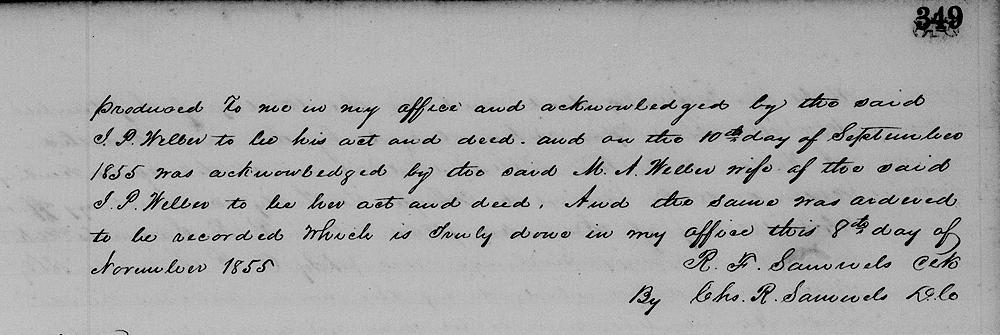 349
produced to me in my office and acknowledged by the said
I. P. Weller to be his act and deed. and on the 10th day of September
1855 was acknowledged by the said M. A. Weller wife of the said
I. P. Weller to be her act and deed, And the same was ordered
to be recorded Which is Truly done in my office this 8th day of
November 1855 R. F. Samuels Clk
By Chs. R. Samuels D.C.